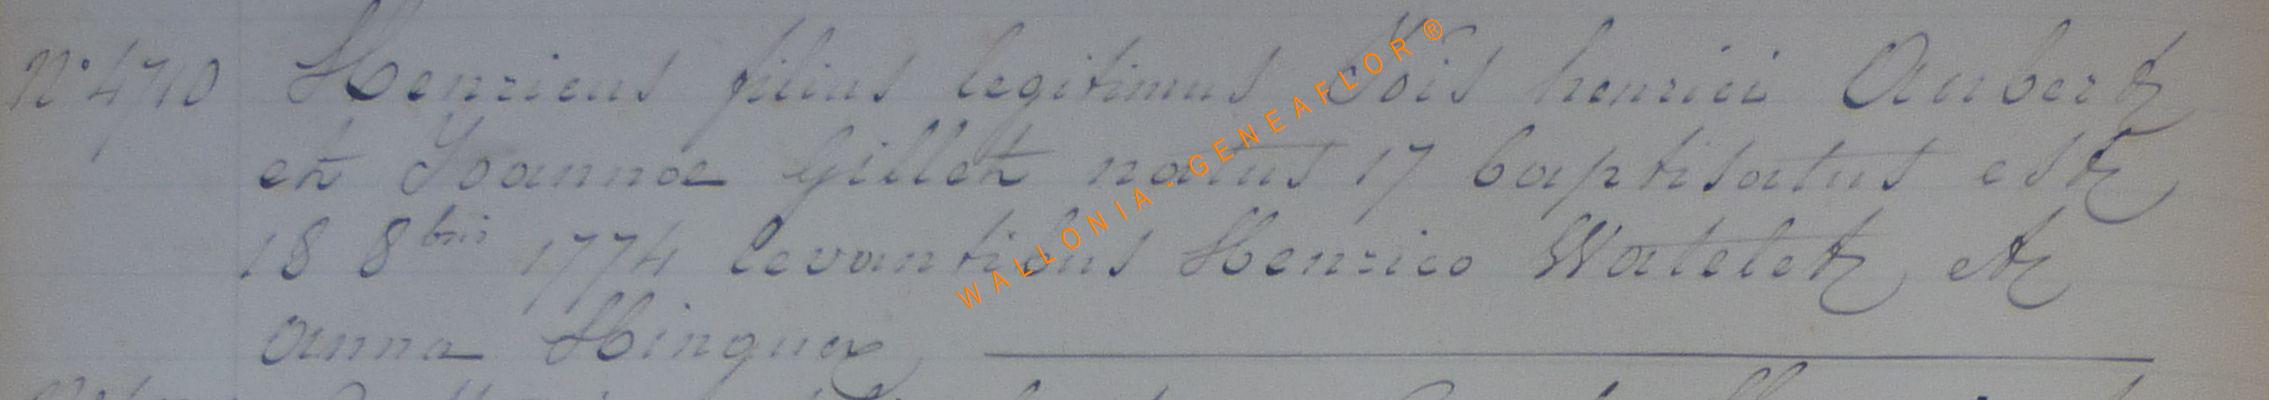 N° 4710 Henricus filius legitimus Jois henrici Aubert
et Joannae Gillet natus 17 baptisatus est
18 8bris 1774 levantibus Henrico Watelet et
Anna Hinquez
WALLONIA-GENEAFLOR®